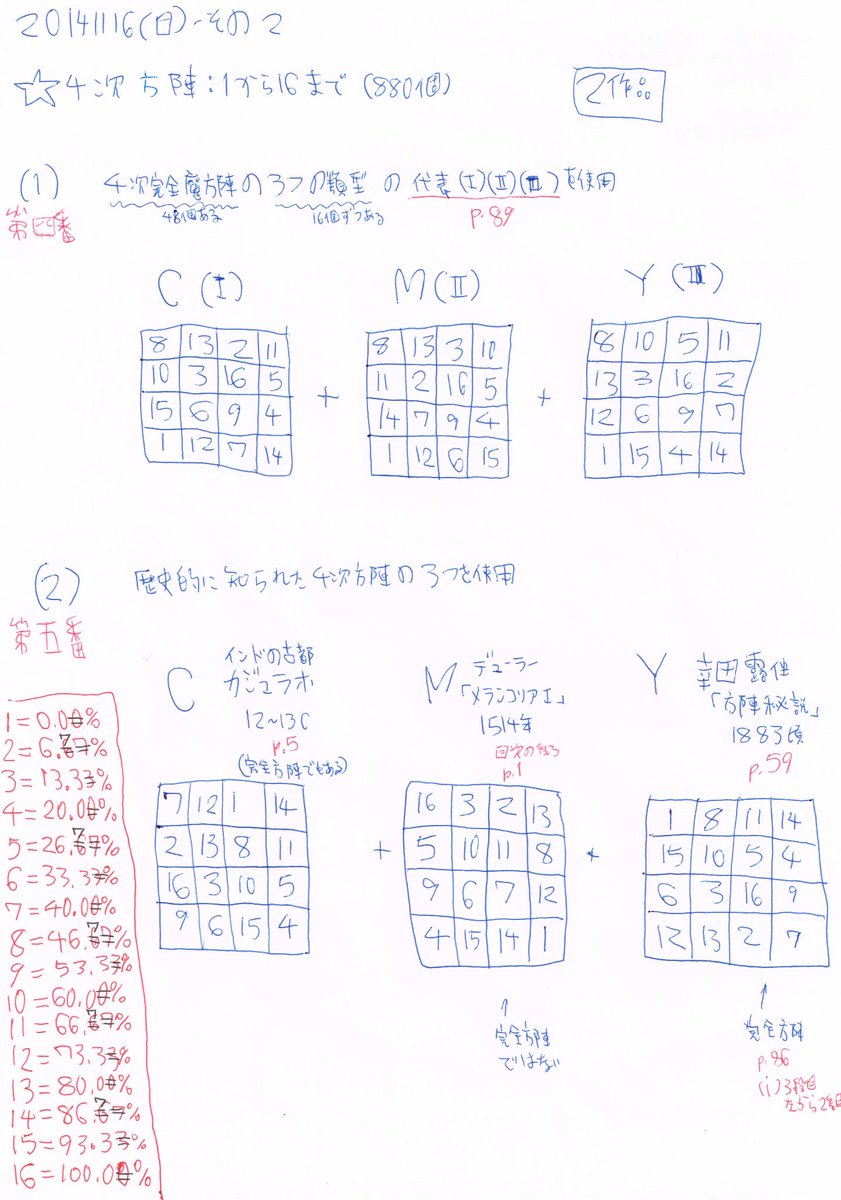 20141116(日)-その2
☆4次方陣:1から16まで(880個)
2作品
(1) 4次完全魔方陣の3つの類型の代表(I)(II)(III)を使用
48個ある 16個ずつある p.89
第四番
C (I) M (II) Y (III)
8 13 2 11
10 3 16 5
15 6 9 4
1 12 7 14
+
8 13 3 10
11 2 16 5
14 7 9 4
1 12 6 15
+
8 10 5 11
13 3 16 2
12 6 9 7
1 15 4 14
(2) 歴史的に知られた4次方陣の3つを使用
第五番
1=0.00%
2=6.7%
3=13.3%
4=20.00%
5=26.7%
6=33.3%
7=40.0%
8=46.7%
9=53.3%
10=60.0%
11=66.7%
12=73.3%
13=80.0%
14=86.7%
15=93.3%
16=100.0%
C
インドの古都
カジュラホ
12~13C
p.5
(完全方陣でもある)
7 12 1 14
2 13 8 11
16 3 10 5
9 6 15 4
+
M
デューラー
「メランコリアI」
1514年
目次の
p.1
16 3 2 13
5 10 11 8
9 6 7 12
4 15 14 1
↑
完全方陣
ではない
+
Y
幸田露伴
「方陣秘説」
1883頃
p.59
1 8 11 14
15 10 5 4
6 3 16 9
12 13 2 7
↑
完全方陣
p.86
(i)3段目
左から2番目